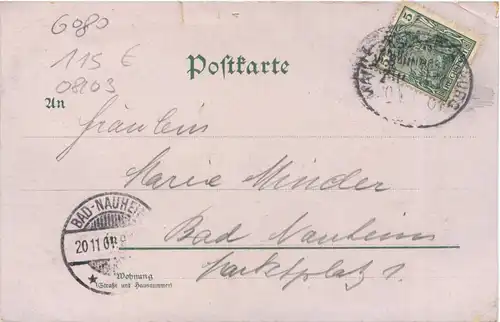 6080
115 €
08103
Postkarte
An
Fräulein
Maria Minder
Bad Nauheim
Marktplatz 1.
Wohnung
(Straße und Hausnummer)
BAD-NAUHEI
20 11 01
5